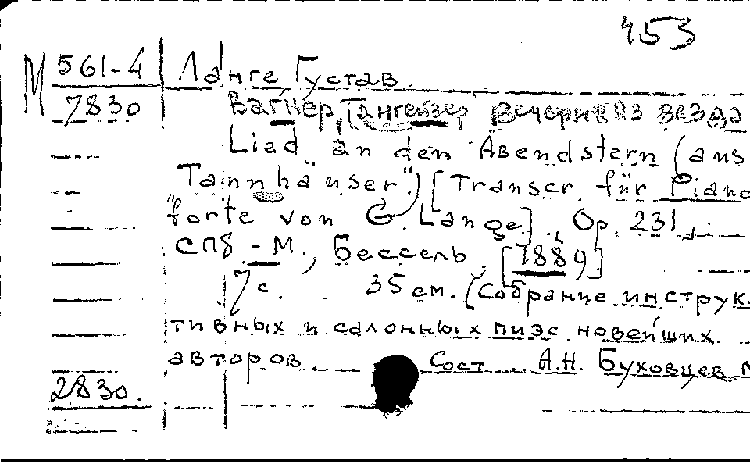 453
М 561-4 Ланге Густав.
7830 Вагнер, Тангейзер, Вечерняя звезда
Lied an den Abendstern (aus
"Tannhäuser") [Transcr. für Piano
forte von G. Lange]. Op. 231.
СПб.-М., Бессель. [1889]
7 с. 35 см. (Собрание инструк
тивных и салонных пиэс новейших
авторов. Сост. А.Н. Буховцев
2830.